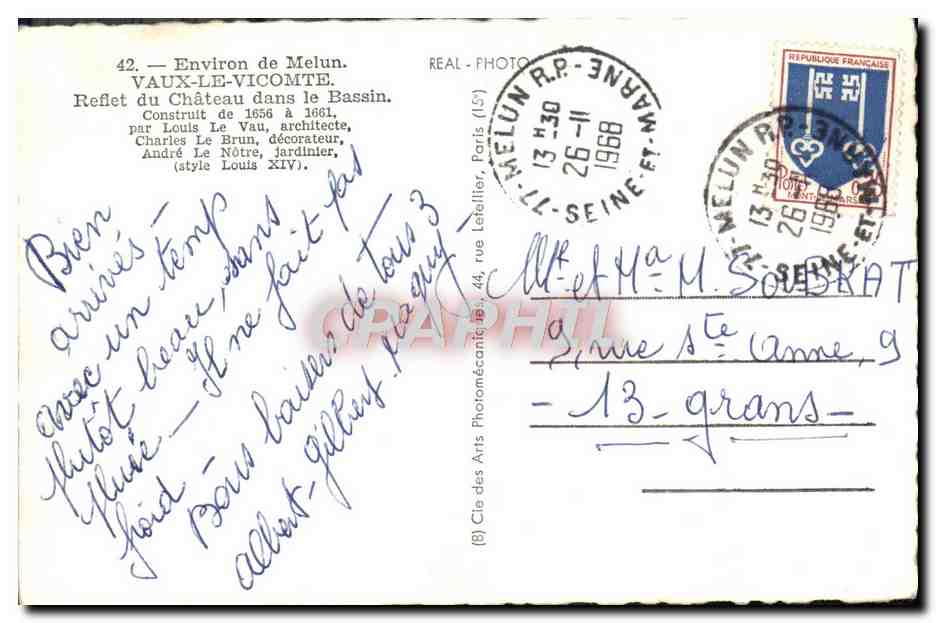 42. — Environ de Melun.
VAUX-LE-VICOMTE.
Reflet du Château dans le Bassin.
Construit de 1656 à 1661,
par Louis Le Vau, architecte,
Charles Le Brun, décorateur,
André Le Nôtre, jardinier,
(style Louis XIV).
REAL - PHOTO
Bien
arrivés -
avec un temp
plutôt beau, sans
pluie - Il ne fait pas
froid -
Bons baisers de tous 3
Albert - Gilbert
(8) Cie des Arts Photomécaniques, 44, rue Letellier, Paris (15e)
77 - MELUN R.P. - SEINE-ET-MARNE
13 H 30
26 - 11
1968
REPUBLIQUE FRANÇAISE
77 - MELUN R.P. - SEINE-ET-MARNE
13 H 30
26 - 11
1968
et M. SOUBRAT
9, rue Ste Anne, 9
- 13 - Grans -
CRAPHIL